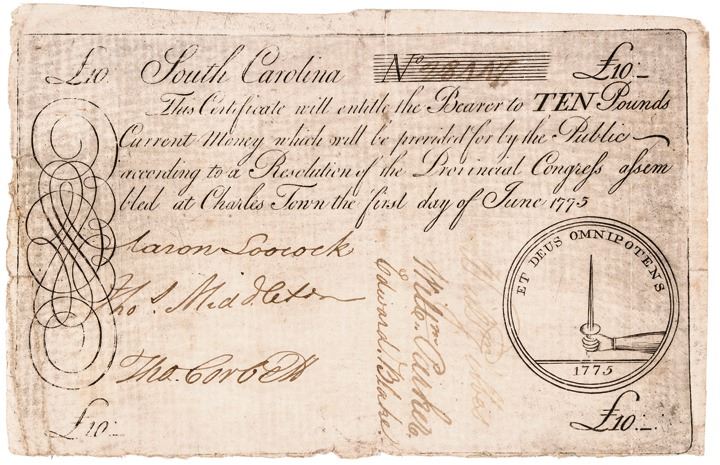 £10: South Carolina No £10:
This Certificate will entitle the Bearer to TEN Pounds
Current Money which will be provided for by the Public
according to a Resolution of the Provincial Congress assem
bled at Charles Town the first day of June 1775
Aaron Loocock
Thos. Middleton
Tho. Corbett
Edward Blake
Willm. Parker
ET DEUS OMNIPOTENS
1775
£10: £10: